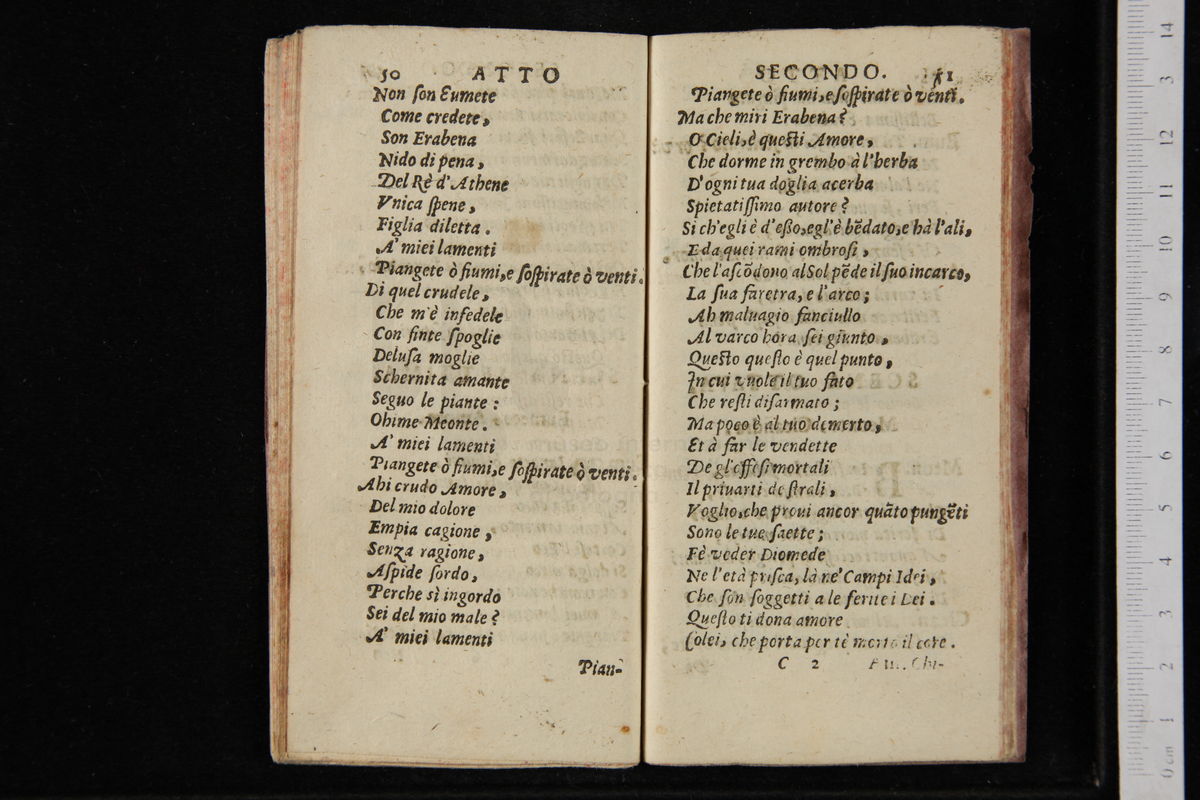 50 ATTO
Non ſon Eumete
Come credete,
Son Erabena
Nido di pena,
Del Rè d'Athene
Vnica ſpene,
Figlia diletta.
A' miei lamenti
Piangete ò fiumi, e ſoſpirate ò venti.
Di quel crudele,
Che m'è infedele
Con finte ſpoglie
Deluſa moglie
Schernita amante
Seguo le piante:
Ohime Meonte.
A' miei lamenti
Piangete ò fiumi, e ſoſpirate ò venti.
Ahi crudo Amore,
Del mio dolore
Empia cagione,
Senza ragione,
Aſpide ſordo,
Perche sì ingordo
Sei del mio male?
A' miei lamenti
Pian-
SECONDO. 51
Piangete ò fiumi, e ſoſpirate ò venti.
Ma che miri Erabena?
O Cieli, è queſti Amore,
Che dorme in grembo à l'herba
D'ogni tua doglia acerba
Spietatiſſimo autore?
Si ch'egli è d'eſſo, egl'è bẽdato, e hà l'ali,
E da quei rami ombroſi,
Che l'aſcõdono al Sol pẽde il ſuo incarco,
La ſua faretra, e l'arco;
Ah maluagio fanciullo
Al varco hora ſei giunto,
Queſto queſto è quel punto,
In cui vuole il tuo fato
Che reſti diſarmato;
Ma poco è al tuo demerto,
Et à far le vendette
De gl'offeſi mortali
Il priuarti de ſtrali,
Voglio, che proui ancor quãto pungẽti
Sono le tue ſaette;
Fè veder Diomede
Ne l'età priſca, là ne' Campi Idei,
Che ſon ſoggetti a le ferite i Dei.
Queſto ti dona amore
Colei, che porta per tè morto il core.
C 2 Chi-